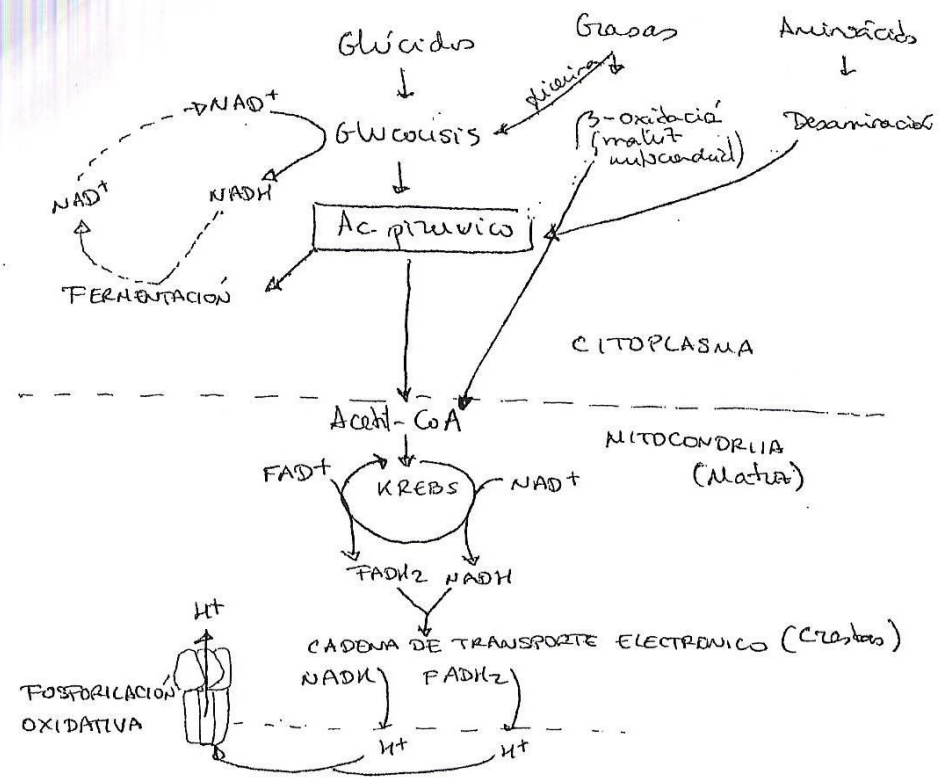 Glúcidos Grasas Aminoácidos
glicerina
NAD+
Glucolisis β-oxidació Desaminación
(matriz mitocondrial)
NAD+ NADH
Ac. pirúvico
FERMENTACIÓN
CITOPLASMA
Acetil-CoA
MITOCONDRIIA
(Matriz)
FAD+ KREBS NAD+
FADH2 NADH
H+
CADENA DE TRANSPORTE ELECTRONICO (Crestas)
NADH FADH2
FOSFORILACIÓN
OXIDATIVA
H+ H+